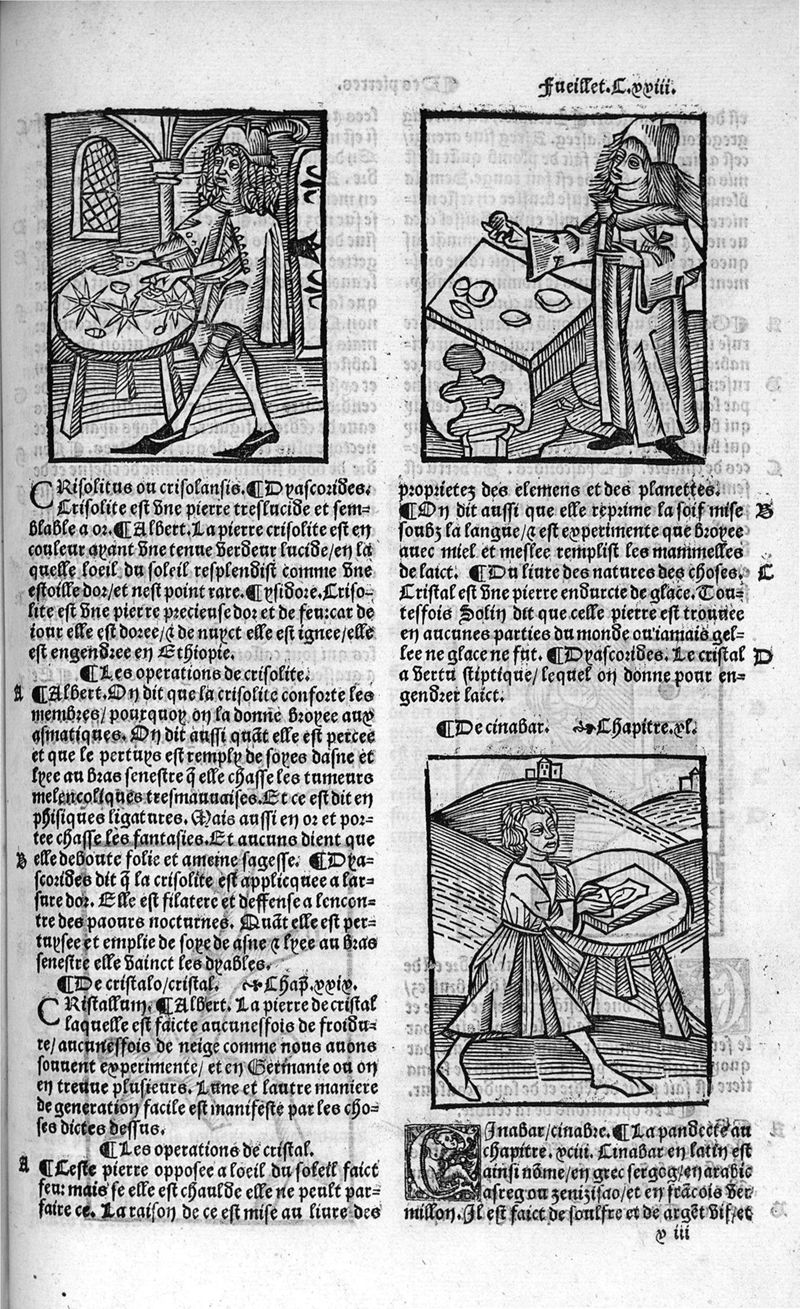 Fueillet.C.xxiii.
CRisolitus ou crisolansis.¶Dyascorides.
Crisolite est vne pierre treslucide et sem=
blable a or.¶Albert.La pierre crisolite est en
couleur ayant vne tenue verdeur lucide/en la
quelle loeil du soleil resplendist comme vne
estoille dor/et nest point rare.¶ysidore.Criso=
lite est vne pierre precieuse dor et de feu:car de
iour elle est doree/⁊ de nuyct elle est ignee/elle
est engendree en Ethiopie.
¶Les operations de crisolite.
A ¶Albert.On dit que la crisolite conforte les
membres/pourquoy on la donne broyee aux
asmatiques. On dit aussi quãt elle est percee
et que le pertuys est remply de soyes dasne et
lyee au bras senestre q̃ elle chasse les tumeurs
melencoliques tresmauuaises.Et ce est dit en
phisiques ligatures. Mais aussi en or et por=
tee chasse les fantasies.Et aucuns dient que
B elle deboute folie et ameine sagesse. ¶Dya=
scorides dit q̃ la crisolite est applicquee a lar=
sure dor. Elle est filatere et deffense a lencon=
tre des paours nocturnes. Quãt elle est per=
tuysee et emplie de soye de asne ⁊ lyee au bras
senestre elle vainct les dyables.
¶De cristalo/cristal. ❧Chap̃.xxix.
CRistallum. ¶Albert. La pierre de cristal
laquelle est faicte aucunesfois de froidu=
re/aucunesfois de neige comme nous auons
souuent experimente/ et en Germanie ou on
en treuue plusieurs. Lune et lautre maniere
de generation facile est manifeste par les cho=
ses dictes dessus.
¶Les operations de cristal.
A ¶Ceste pierre opposee a loeil du soleil faict
feu: mais se elle est chaulde elle ne peult par=
faire ce. La raison de ce est mise au liure des
proprietez des elemens et des planettes.
¶On dit aussi que elle reprime la soif mise B
soubz la langue/⁊ est experimente que broyee
auec miel et meslee remplist les mammelles
de laict. ¶Du liure des natures des choses. C
Cristal est vne pierre endurcie de glace. Tou=
tesfois Solin dit que celle pierre est trouuee
en aucunes parties du monde ou iamais gel=
lee ne glace ne fut. ¶Dyascorides. Le cristal D
a vertu stiptique/ lequel on donne pour en=
gendrer laict.
¶De cinabar. ❧Chapitre.xl.
CInabar/cinabre. ¶La pandecte au
chapitre. xciii. Cinabar en latin est
ainsi nõme/en grec sergog/en arabic
asregou zenizisao/et en frãcois ver
millon. Il est faict de soulfre et de argẽt vif/et
y iii